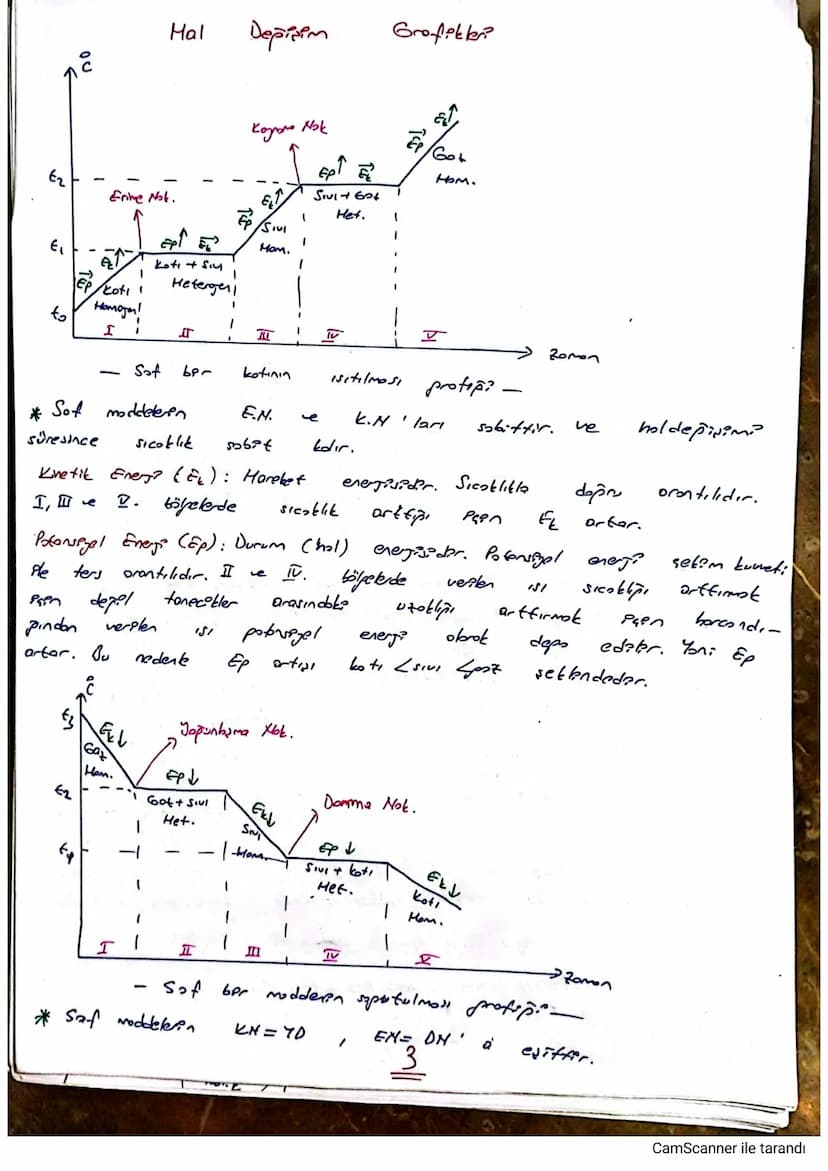 Hal Değişim Grafikleri
°C
Ek↑
Ep→
Gaz
Hom.
Kaynama Nok.
Ep↑ Ek→
t2
Sıvı + Gaz
Het.
Erime Nok.
Ek↑
Ep→
Sıvı
Hom.
t1
Ep↑ Ek→
Ek↑
Katı + Sıvı
Heterojen
Ep→
Katı
Homojen
t0
I II III IV V
Zaman
— Saf bir katının ısıtılması grafiği —
* Saf maddelerin E.N. ve K.N'ları sabittir. ve hal değişimi
süresince sıcaklık sabit kalır.
Kinetik Enerji (Ek): Hareket enerjisidir. Sıcaklıkla doğru orantılıdır.
I, III ve V. bölgelerde sıcaklık arttığı için Ek artar.
Potansiyel Enerji (Ep): Durum (hal) enerjisidir. Potansiyel enerji çekim kuvveti
ile ters orantılıdır. II ve IV. bölgelerde verilen ısı sıcaklığı arttırmak
için değil tanecikler arasındaki uzaklığı arttırmak için harcandı-
ğından verilen ısı potansiyel enerji olarak depo edilir. Yani Ep
artar. Bu nedenle Ep artışı katı < sıvı < gaz şeklindedir.
°C
t3
Ek↓
Gaz
Hom.
Yoğunlaşma Nok.
t2
Ep↓
Gaz + Sıvı
Het.
Ek↓
Sıvı
Hom.
Donma Nok.
Ep↓
Sıvı + Katı
Het.
Ek↓
Katı
Hom.
I II III IV V
Zaman
— Saf bir maddenin soğutulması grafiği —
* Saf maddelerin KN = YD , EN = DN' a eşittir.
3
CamScanner ile tarandı